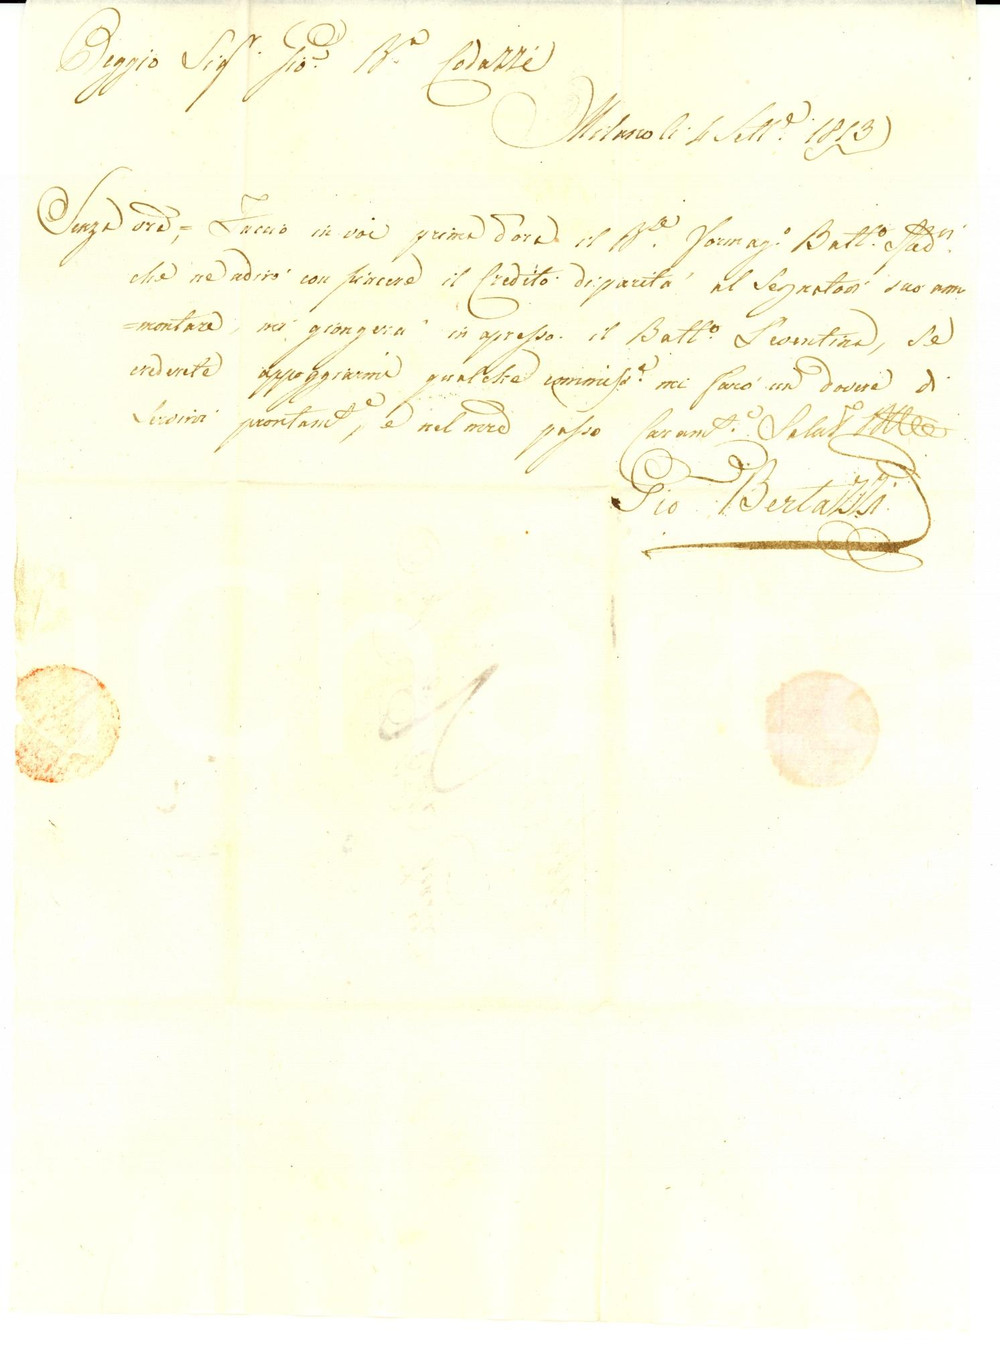 Reggio Sigr. Gio. Bta. Codazzi
Milano li 4 Sette. 1813
Senza ore, = Faccio in voi prima d'ora il Formago. Battto.
che ne udirò con piacere il Credito di parità al Segnatovi suo am
=montare, mi giongerà in apresso il Battto. Fiorentina, se
crederete appoggiarmi qualche commissne. mi farò un dovere di
Servirvi prontamte., e nel mre passo Caramte. Salutvi
Gio Bertazzi